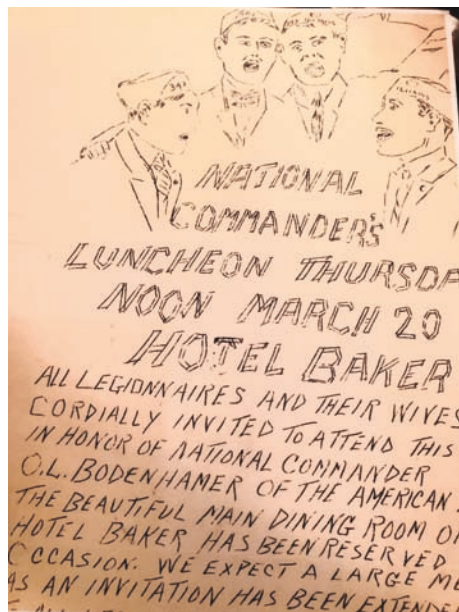 NATIONAL
COMMANDER'S
LUNCHEON THURSDA
NOON MARCH 20
HOTEL BAKER
ALL LEGIONNAIRES AND THEIR WIVES
CORDIALLY INVITED TO ATTEND THIS
IN HONOR OF NATIONAL COMMANDER
O.L. BODENHAMER OF THE AMERICAN
THE BEAUTIFUL MAIN DINING ROOM O
HOTEL BAKER HAS BEEN RESERVED
OCCASION. WE EXPECT A LARGE ME
AS AN INVITATION HAS BEEN EXTENDE